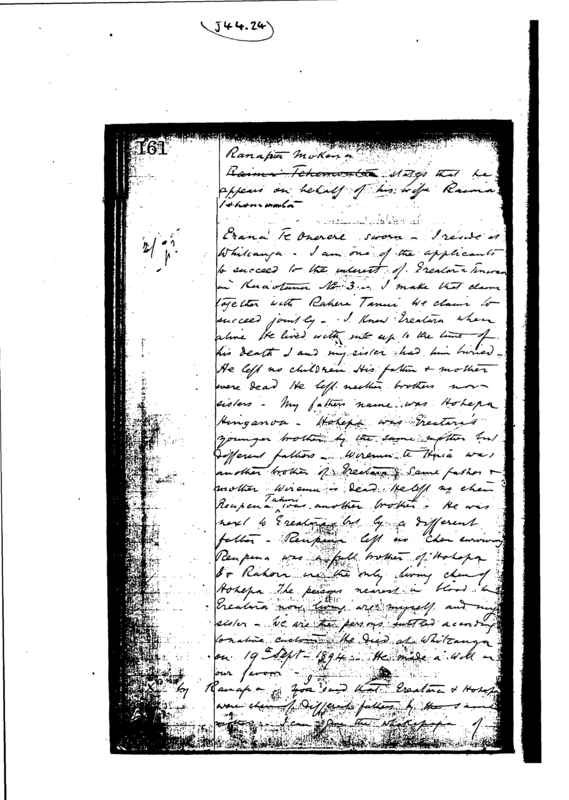 J44.24
161
Ranapia Mokena
Raima Tehemowata states that he
appears on behalf of his wife Raima
Erana Te Onerere sworn - I reside at
Whitianga - I am one of the applicants
to succeed to the interest of Ereatara
in Kuaotunu No 3 - I make that claim
together with Rahera Tanui We claim to
succeed jointly - I knew Ereatara when
alive He lived with me up to the time of
his death I and my sister had him buried -
He left no children His father & mother
were dead He left neither brothers nor
sisters - My fathers name was Hohepa
Hinganoa - Hohepa was Ereatara's
younger brother by the same mother but
different fathers - Wiremu te Huia was
another brother of Ereatara same father &
mother Wiremu is dead He left no chen
Reupena Tahuri was another brother - He was
next to Ereatara but by a different
father - Reupena left no chen surviving
Reupena was a full brother of Hohepa
I & Rahera are the only living chen of
Hohepa The persons nearest in blood to
Ereatara now living are myself and my
sister - We are the persons entitled according
to native custom He died at Whitianga
on 19th Sept - 1894 - He made a Will in
our favor -
by Ranapia - I said that Ereatara & Hohepa
were chen of different fathers by the same
I can give the whakapapa of